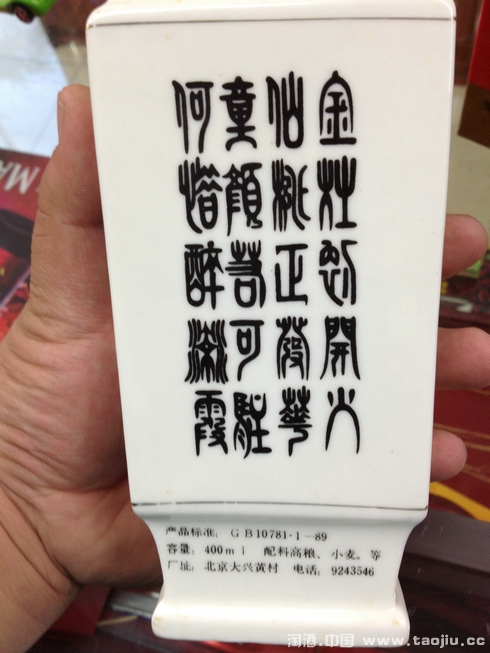 金灶初開火
仙桃正發華
童顏若可駐
何惜醉流霞
产品标准：GB10781·1—89
容量：400ml 配料高粮、小麦。等
厂址：北京大兴黄村 电话：9243546
淘酒.中国 www.taojiu.cc